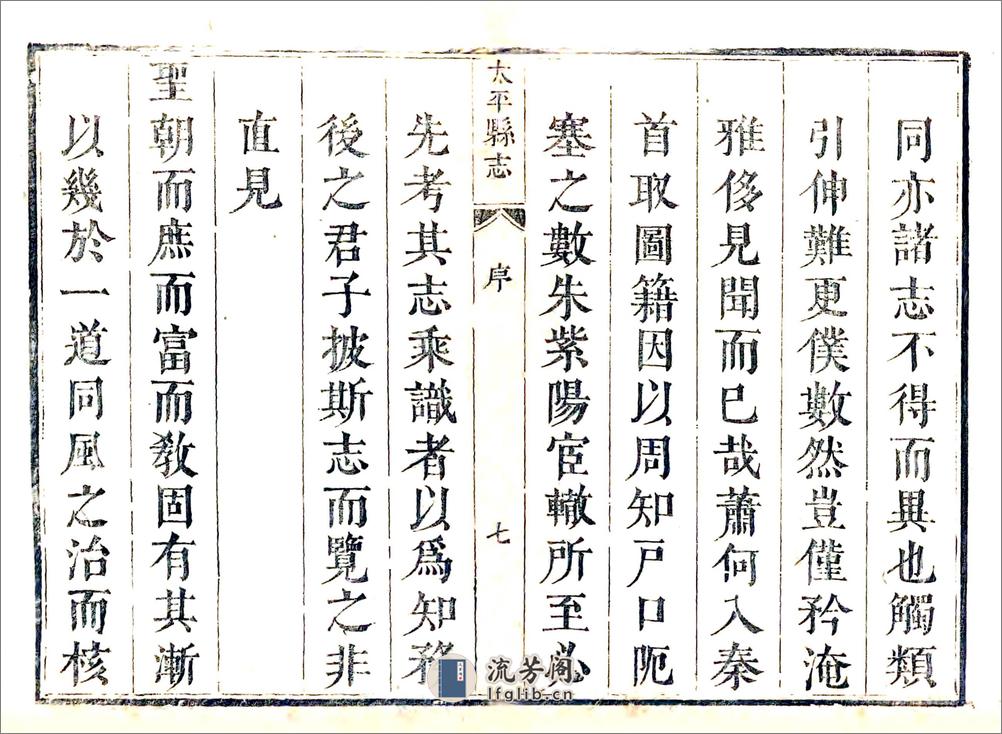 同亦諸志不得而異也觸類
引伸難更僕數然豈僅矜淹
雅侈見聞而已哉蕭何入秦
首取圖籍因以周知戸口阨
塞之數朱紫陽宦轍所至必
太平縣志
序
七
先考其志乘識者以爲知務
後之君子披斯志而覽之非
直見
聖朝而庶而富而教固有其漸
以幾於一道同風之治而核
流芳阁
lfglib.cn